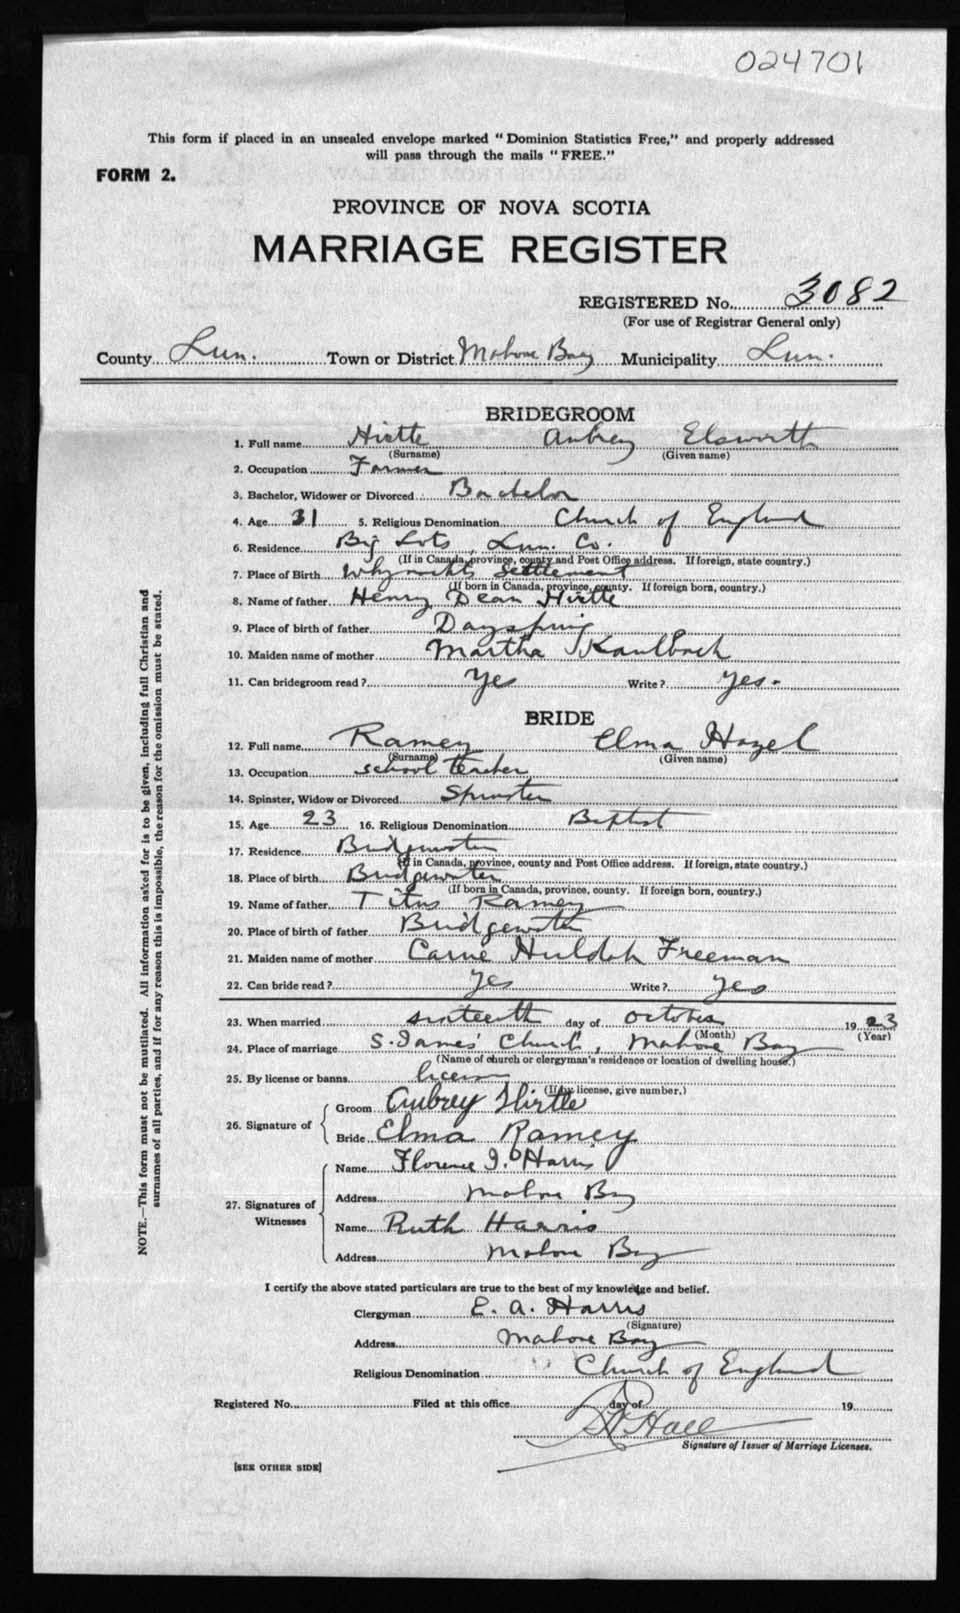 024701
This form if placed in an unsealed envelope marked "Dominion Statistics Free," and properly addressed
will pass through the mails "FREE."
FORM 2.
PROVINCE OF NOVA SCOTIA
MARRIAGE REGISTER
REGISTERED No. 3082
(For use of Registrar General only)
County Lun. Town or District Mahone Bay Municipality Lun.
BRIDEGROOM
1. Full name Hirtle Aubrey Elsworth
(Surname) (Given name)
2. Occupation Farmer
3. Bachelor, Widower or Divorced Bachelor
4. Age 31 5. Religious Denomination Church of England
6. Residence Big Lots, Lun. Co.
(If in Canada, province, county and Post Office address. If foreign, state country.)
7. Place of Birth Whynachts Settlement
(If born in Canada, province, county. If foreign born, country.)
8. Name of father Henry Dean Hirtle
9. Place of birth of father Dayspring
10. Maiden name of mother Martha Kaulbach
11. Can bridegroom read? Yes Write? Yes.
BRIDE
12. Full name Ramey Elma Hazel
(Surname) (Given name)
13. Occupation school teacher
14. Spinster, Widow or Divorced Spinster
15. Age 23 16. Religious Denomination Baptist
17. Residence Bridgewater
(If in Canada, province, county and Post Office address. If foreign, state country.)
18. Place of birth Bridgewater
(If born in Canada, province, county. If foreign born, country.)
19. Name of father Titus Ramey
20. Place of birth of father Bridgewater
21. Maiden name of mother Carrie Huldah Freeman
22. Can bride read? Yes Write? Yes
23. When married sixteenth day of October 1923
(Month) (Year)
24. Place of marriage S. James' Church, Mahone Bay
(Name of church or clergyman's residence or location of dwelling house.)
25. By license or banns license
(If by license, give number.)
26. Signature of Groom Aubrey Hirtle
Bride Elma Ramey
27. Signatures of Witnesses Name Florence I. Harris
Address Mahone Bay
Name Ruth Harris
Address Mahone Bay
I certify the above stated particulars are true to the best of my knowledge and belief.
Clergyman E. A. Harris
(Signature)
Address Mahone Bay
Religious Denomination Church of England
Registered No. Filed at this office day of 19
Hall
Signature of Issuer of Marriage Licenses.
[SEE OTHER SIDE]
NOTE.—This form must not be mutilated. All information asked for is to be given, including full Christian and
surnames of all parties, and if for any reason this is impossible, the reason for the omission must be stated.